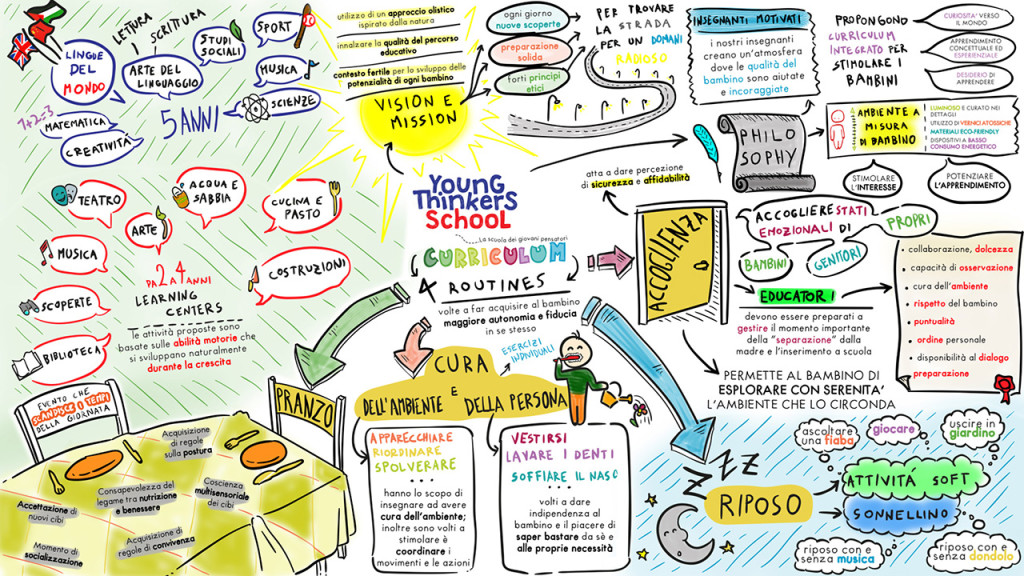 LETTURA
E
SCRITTURA
LINGUE
DEL
MONDO
ARTE DEL
LINGUAGGIO
STUDI
SOCIALI
SPORT
MUSICA
SCIENZE
1+2=3
MATEMATICA
CREATIVITA'
5 ANNI
utilizzo di un approccio olistico
ispirato dalla natura
innalzare la qualità del percorso
educativo
contesto fertile per lo sviluppo delle
potenzialità di ogni bambino
VISION E
MISSION
ogni giorno
nuove scoperte
preparazione
solida
forti principi
etici
PER TROVARE
LA STRADA
PER UN DOMANI
RADIOSO
INSEGNANTI MOTIVATI
i nostri insegnanti
creano un'atmosfera
dove le qualità del
bambino sono aiutate
e incoraggiate
PROPONGONO
CURRICULUM
INTEGRATO PER
STIMOLARE I
BAMBINI
CURIOSITA' VERSO
IL MONDO
APPRENDIMENTO
CONCETTUALE ED
ESPERIENZIALE
DESIDERIO DI
APPRENDERE
PHILO
SOPHY
AMBIENTE A
MISURA
DI BAMBINO
LUMINOSO E CURATO NEI
DETTAGLI
UTILIZZO DI VERNICI ATOSSICHE
MATERIALI ECO-FRIENDLY
DISPOSITIVI A BASSO
CONSUMO ENERGETICO
STIMOLARE
L'INTERESSE
POTENZIARE
L'APPRENDIMENTO
TEATRO
ACQUA E
SABBIA
CUCINA E
PASTO
ARTE
MUSICA
COSTRUZIONI
SCOPERTE
BIBLIOTECA
DA 2 A 4 ANNI
LEARNING
CENTERS
le attività proposte sono
basate sulle abilità motorie che
si sviluppano naturalmente
durante la crescita
YOUNG
THINKERS
SCHOOL
La scuola dei giovani pensatori
CURRICULUM
4 ROUTINES
volte a far acquisire al bambino
maggiore autonomia e fiducia
in se stesso
atta a dare percezione
di sicurezza e affidabilità
ACCOGLIENZA
ACCOGLIERE STATI
EMOZIONALI DI
PROPRI
BAMBINI
GENITORI
EDUCATORI
devono essere preparati a
gestire il momento importante
della "separazione" dalla
madre e l'inserimento a scuola
• collaborazione, dolcezza
• capacità di osservazione
• cura dell'ambiente
• rispetto del bambino
• puntualità
• ordine personale
• disponibilità al dialogo
• preparazione
PERMETTE AL BAMBINO DI
ESPLORARE CON SERENITA'
L'AMBIENTE CHE LO CIRCONDA
EVENTO CHE
SCANDISCE I TEMPI
DELLA GIORNATA
PRANZO
Acquisizione
di regole
sulla postura
Consapevolezza del
legame tra nutrizione
e benessere
Coscienza
multisensoriale
dei cibi
Accettazione di
nuovi cibi
Acquisizione di
regole di convivenza
Momento di
socializzazione
CURA
E
DELL'AMBIENTE
DELLA PERSONA
ESERCIZI
INDIVIDUALI
APPARECCHIARE
RIORDINARE
SPOLVERARE
...
hanno lo scopo di
insegnare ad avere
cura dell'ambiente;
inoltre sono volti a
stimolare è
coordinare i
movimenti e le azioni
VESTIRSI
LAVARE I DENTI
SOFFIARE IL NASO
...
volti a dare
indipendenza al
bambino e il piacere di
saper bastare da sè e
alle proprie necessità
ZZZ
RIPOSO
ascoltare
una fiaba
giocare
uscire in
giardino
ATTIVITÁ SOFT
SONNELLINO
riposo con e
senza musica
riposo con e
senza dondolo